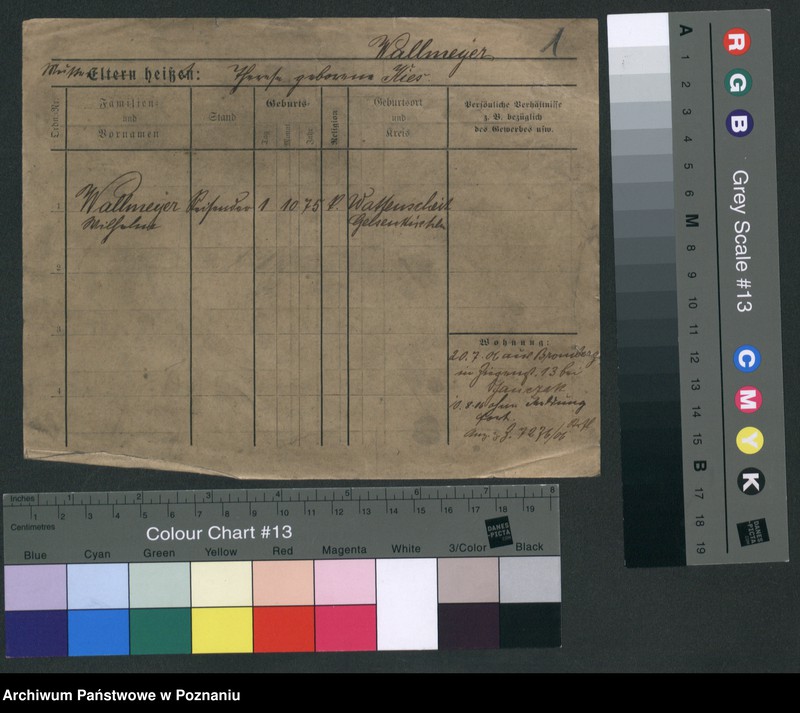 Wallmeyer 1
Eltern heißen: Therese geborene Kies
Lfde. Nr.
Familien-
und
Vornamen
Stand
Geburts-
Tag
Monat
Jahr
Religion
Geburtsort
und
Kreis
Persönliche Verhältnisse
z. B. bezüglich
des Gewerbes usw.
1 Wallmeyer Reisender 1 10 75 Wattenscheit
Wilhelm Gelsenkirchen
2
3
4
Wohnung:
20.7.06 aus Bromberg
in 13 bei
ohne Meldung
fort.
7276/06
R
G
B
Grey Scale #13
C
M
Y
K
A 1 2 3 4 5 6 M 8 9 10 11 12 13 14 15 B 17 18 19
DANES
-PICTA
.COM
Inches 1 2 3 4 5 6 7 8
Centimetres 1 2 3 4 5 6 7 8 9 10 11 12 13 14 15 16 17 18 19
Colour Chart #13
DANES
-PICTA
.COM
Blue Cyan Green Yellow Red Magenta White 3/Color Black
Archiwum Państwowe w Poznaniu